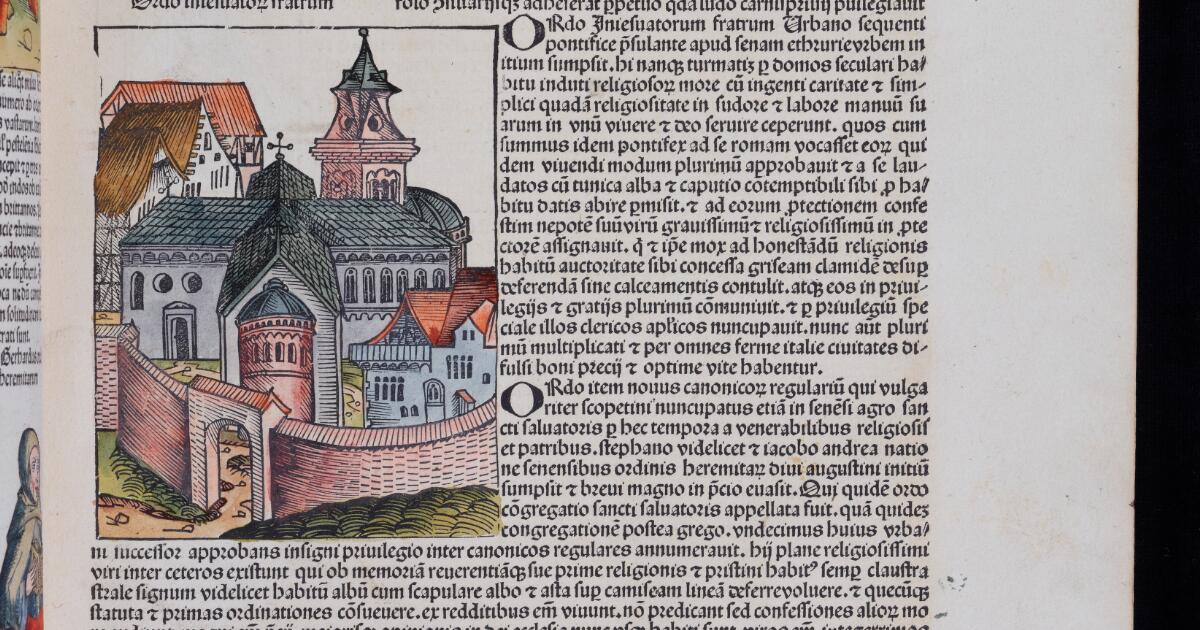 Ordo iniesuatoꝝ fratrum
ORdo Iniesuatorum fratrum Urbano sequenti
pontifice p̄sulante apud senam ethrurie vrbem in
itium sumpsit. hi nanqꝫ turmatiꝫ ꝑ domos seculari ha/
bitu induti religiosoꝝ more cū ingenti caritate ⁊ sim-
plici quadā religiositate in sudore ⁊ labore manuū su
arum in vnū viuere ⁊ deo seruire ceperunt. quos cum
summus idem pontifex ad se romam vocasset eoꝝ qui
dem viuendi modum plurimū approbauit ⁊ a se lau-
datos cū tunica alba ⁊ caputio cōtemptibili sibi ꝓ ha/
bitu datis abire ꝑmisit. ⁊ ad eorum ꝓtectionem confe
stim nepotē suū virū grauissimū ⁊ religiosissimū in ꝓte
ctorē assignauit. q̇ ⁊ ip̄e mox ad honestādū religionis
habitū auctoritate sibi concessa griseam clamidē desuꝑ
deferendā sine calceamentis contulit. atqꝫ eos in priui-
legijs ⁊ gratijs plurimū cōmuniuit. ⁊ ꝑ priuilegiū spe
ciale illos clericos apl̓icos nuncupauit. nunc aūt pluri
mū multiplicati ⁊ per omnes ferme italie ciuitates di-
fusi boni precij ⁊ optime vite habentur.
ORdo item nouus canonicoꝝ regulariū qui vulga
riter scopetini nuncupatus etiā in senēsi agro san
cti saluatoris ꝑ hec tempora a venerabilibus religiosis
et patribus. stephano videlicet ⁊ iacobo andrea natio
ne senensibus ordinis heremitaꝝ diui augustini initiū
sumpsit ⁊ breui magno in p̄cio euasit. Qui quidē ordo
cōgregatio sancti saluatoris appellata fuit. quā quideꝫ
congregationē postea grego. vndecimus huius vrba/
ni successor approbans insigni priuilegio inter canonicos regulares annumerauit. hij plane religiosissimi
viri inter ceteros existunt qui ob memoriā reuerentiāqꝫ sue prime religionis ⁊ pristini habitꝰ semꝑ claustra
strale signum videlicet habitū albū cum scapulare albo ⁊ asta suꝑ camiseam lineā deferre voluere. ⁊ quecūqꝫ
statuta ⁊ primas ordinationes cōsueuere. ex redditibus em̄ viuunt. nō predicant sed confessiones alioꝝ mo